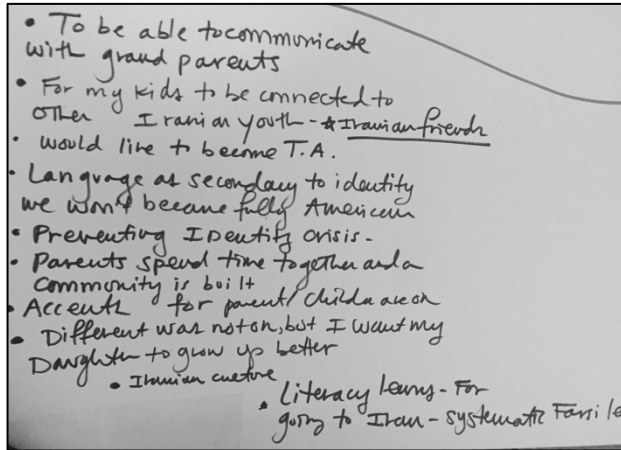 • To be able to communicate
with grand parents
• For my kids to be connected to
other Iranian youth - * Iranian friends
• would like to become T.A.
• Language as secondary to identity
we won't became fully American
• Preventing Identity crisis -
• Parents spend time together and a
community is built
• Accents for parent/
• Different was not on, but I want my
Daughter to grow up better
• Iranian culture
• Literacy - For
going to Iran - systematic Farsi le